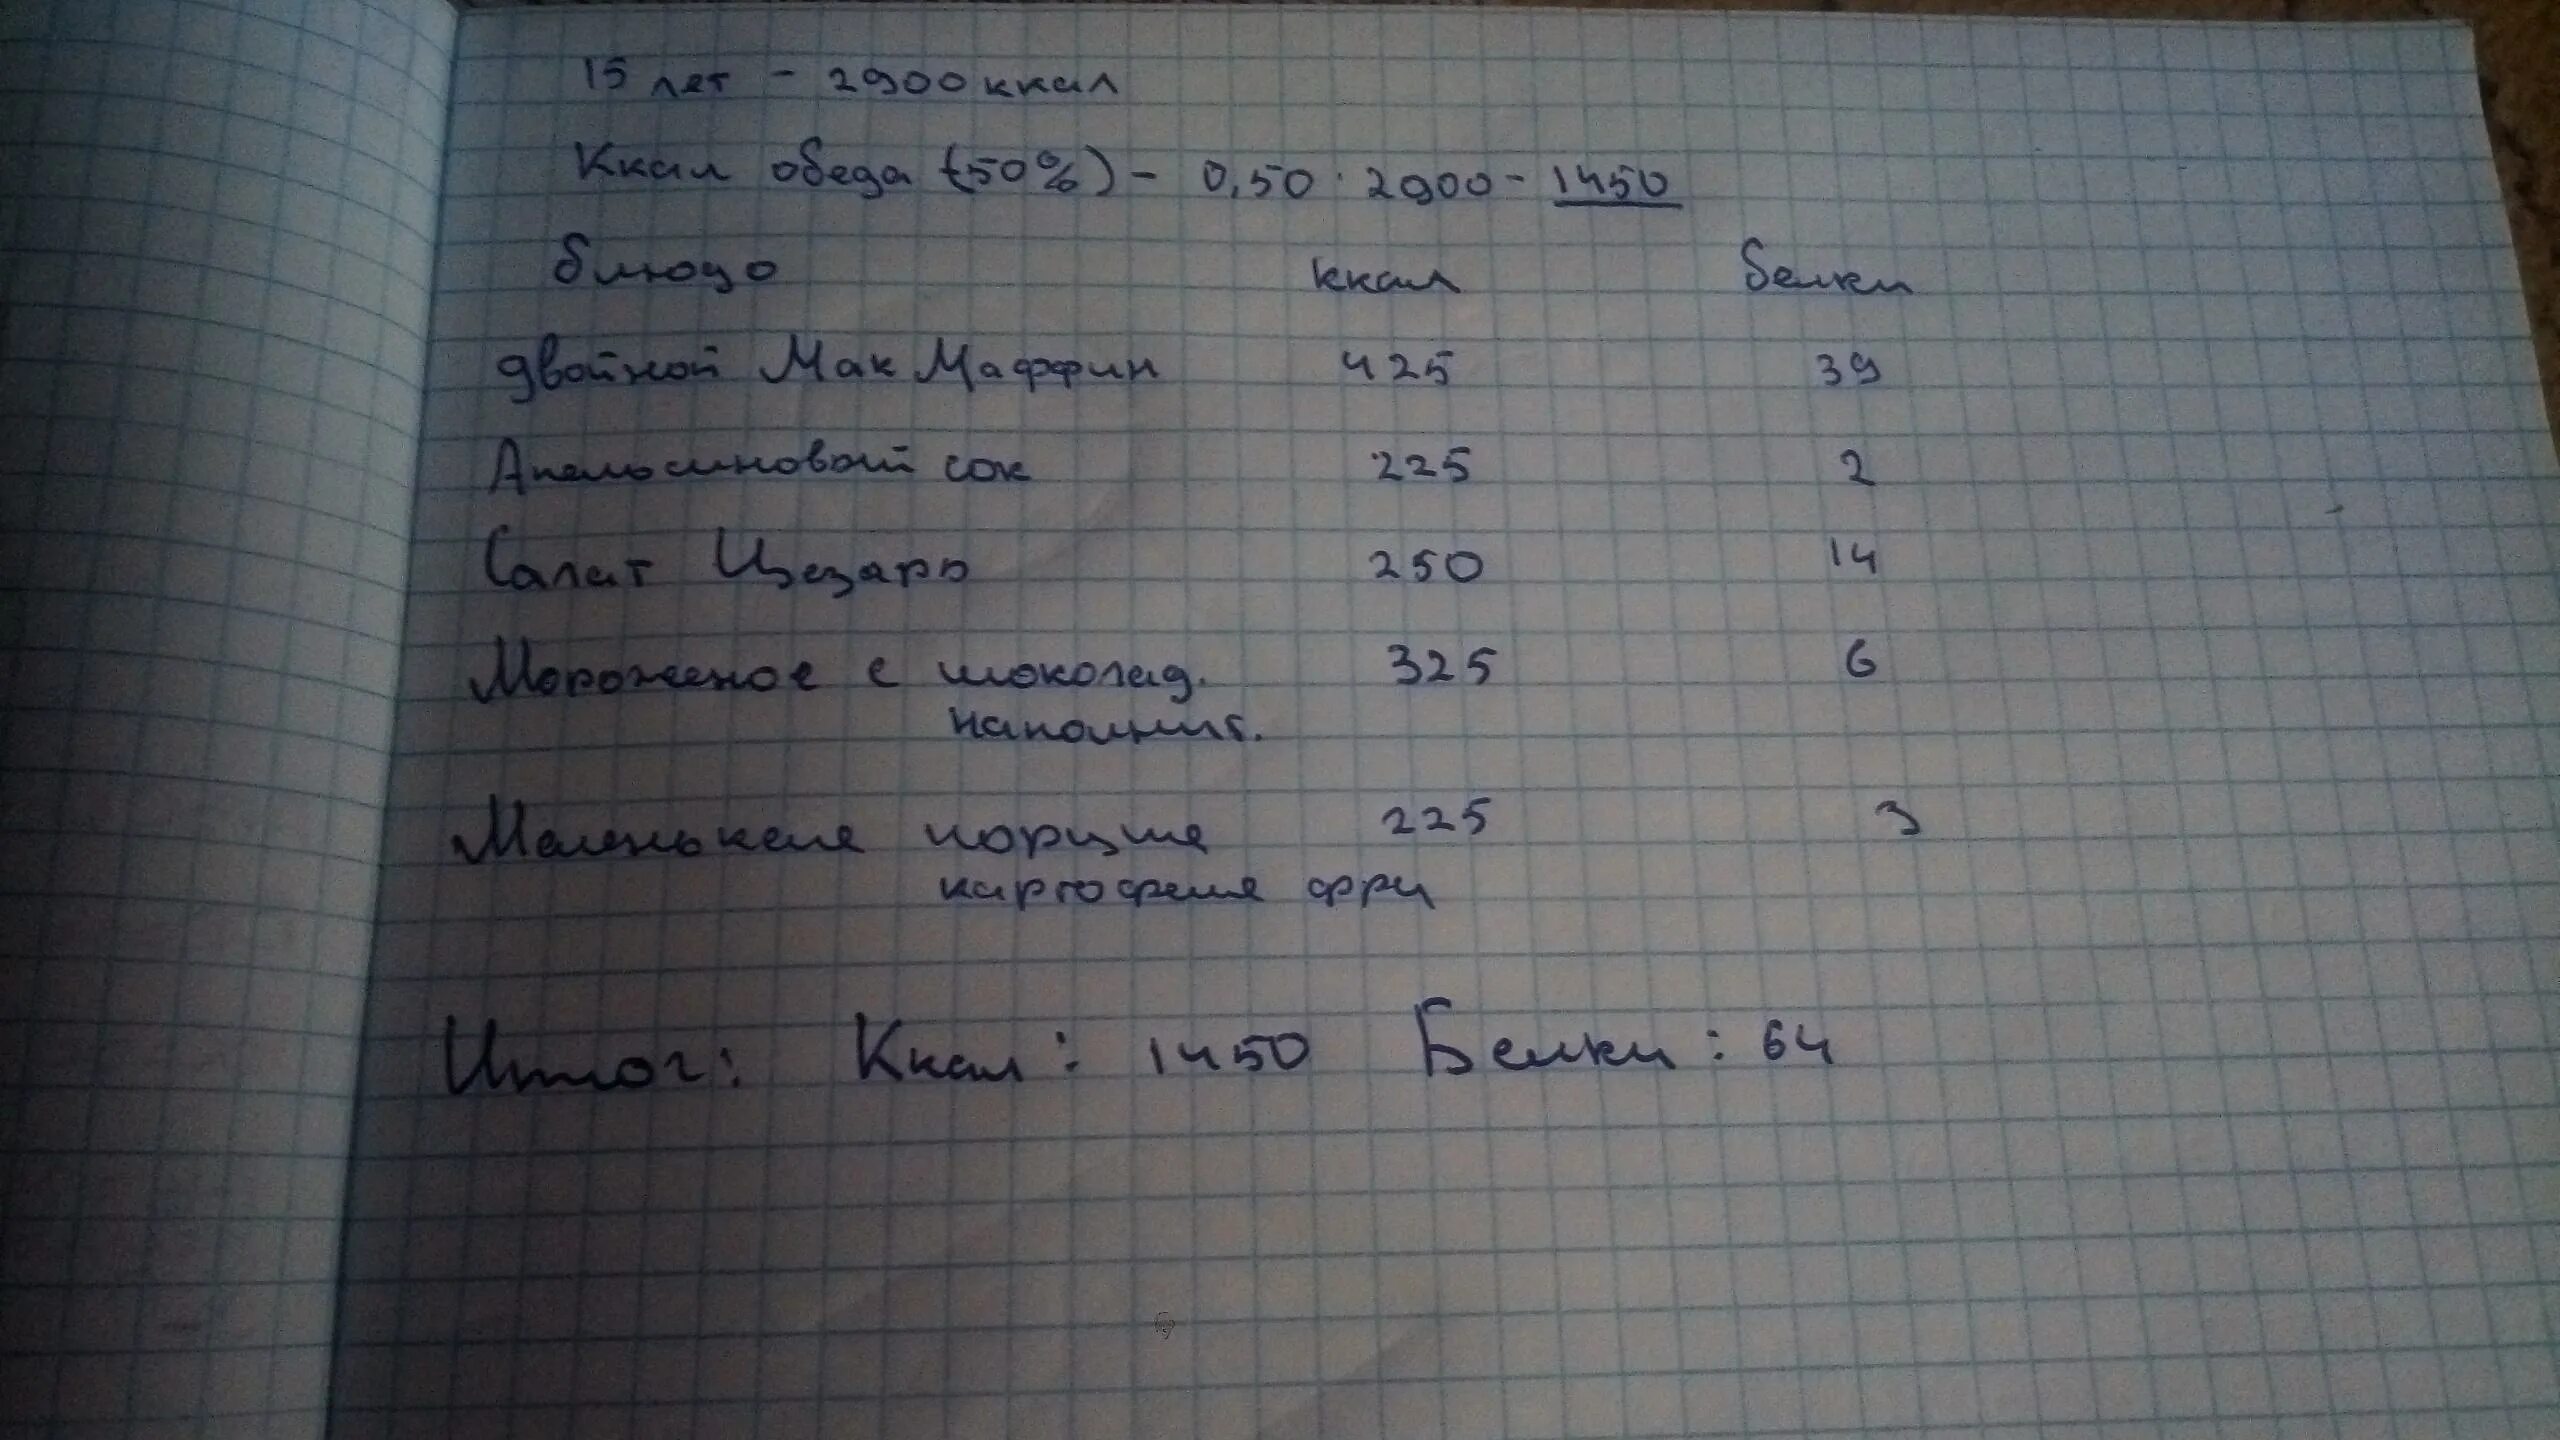 15 лет - 2900 ккал
Ккал обеда (50%) - 0,50 · 2900 - 1450
блюдо ккал белки
двойной Мак Маффин 425 39
Апельсиновый сок 225 2
Салат Цезарь 250 14
Мороженое с шоколад. 325 6
наполнит.
Маленькая порция 225 3
картофеля фри
Итог: Ккал: 1450 Белки: 64